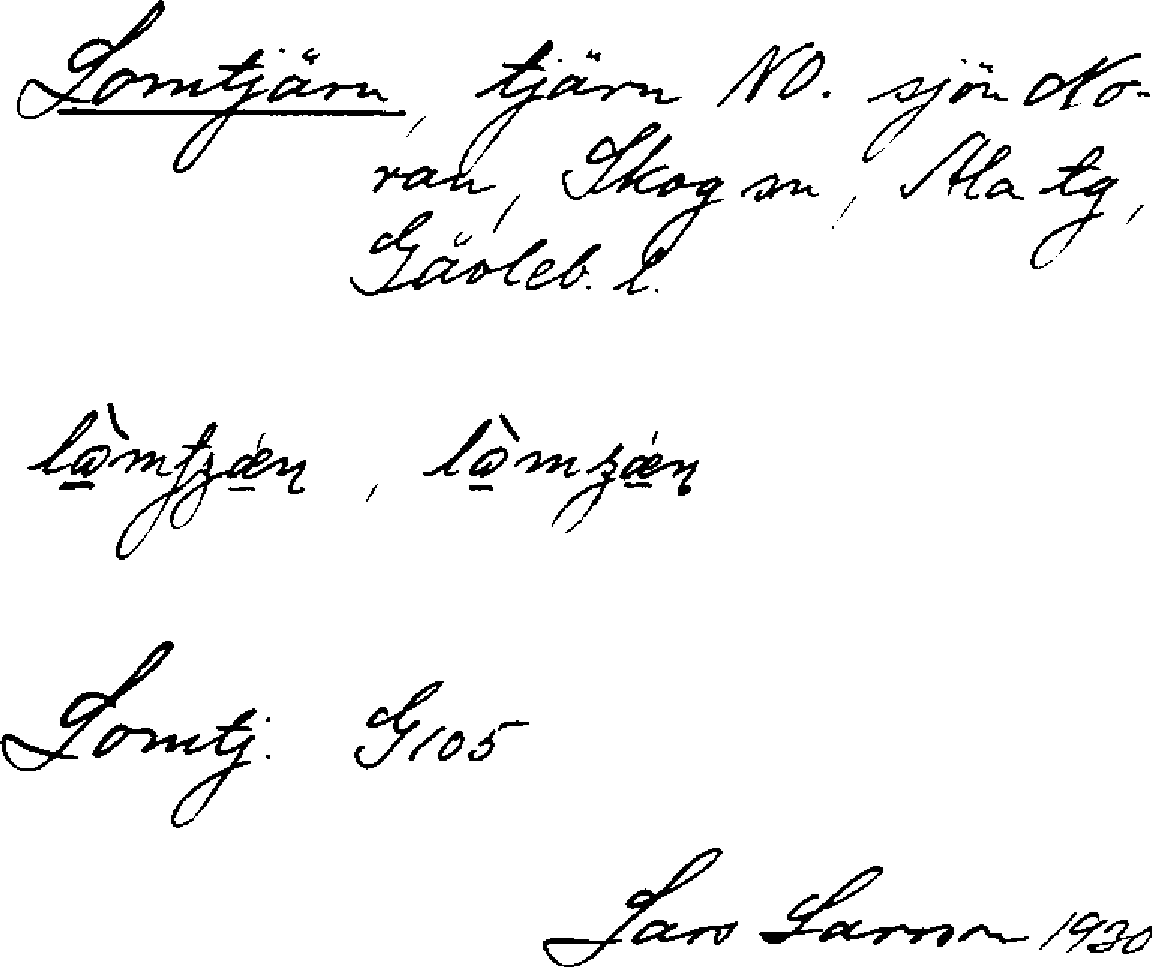 Lomtjärn, tjärn NO. sjön No-
ran, Skog sn, Ala tg,
Gävleb. l.
Lomtj. G105
Lars Larsson 1930